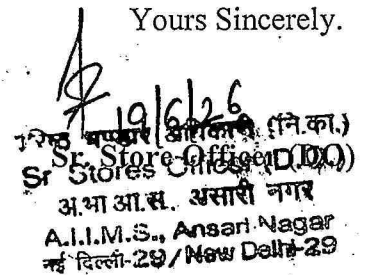 Yours Sincerely.
19/6/26
वरिष्ठ भण्डार अधिकारी (नि.का.)
Sr. Store Officer (DO)
Sr Stores Officer (D.O.)
अ.भा.आ.स. अंसारी नगर
A.I.I.M.S., Ansari Nagar
नई दिल्ली-29 / New Delhi-29